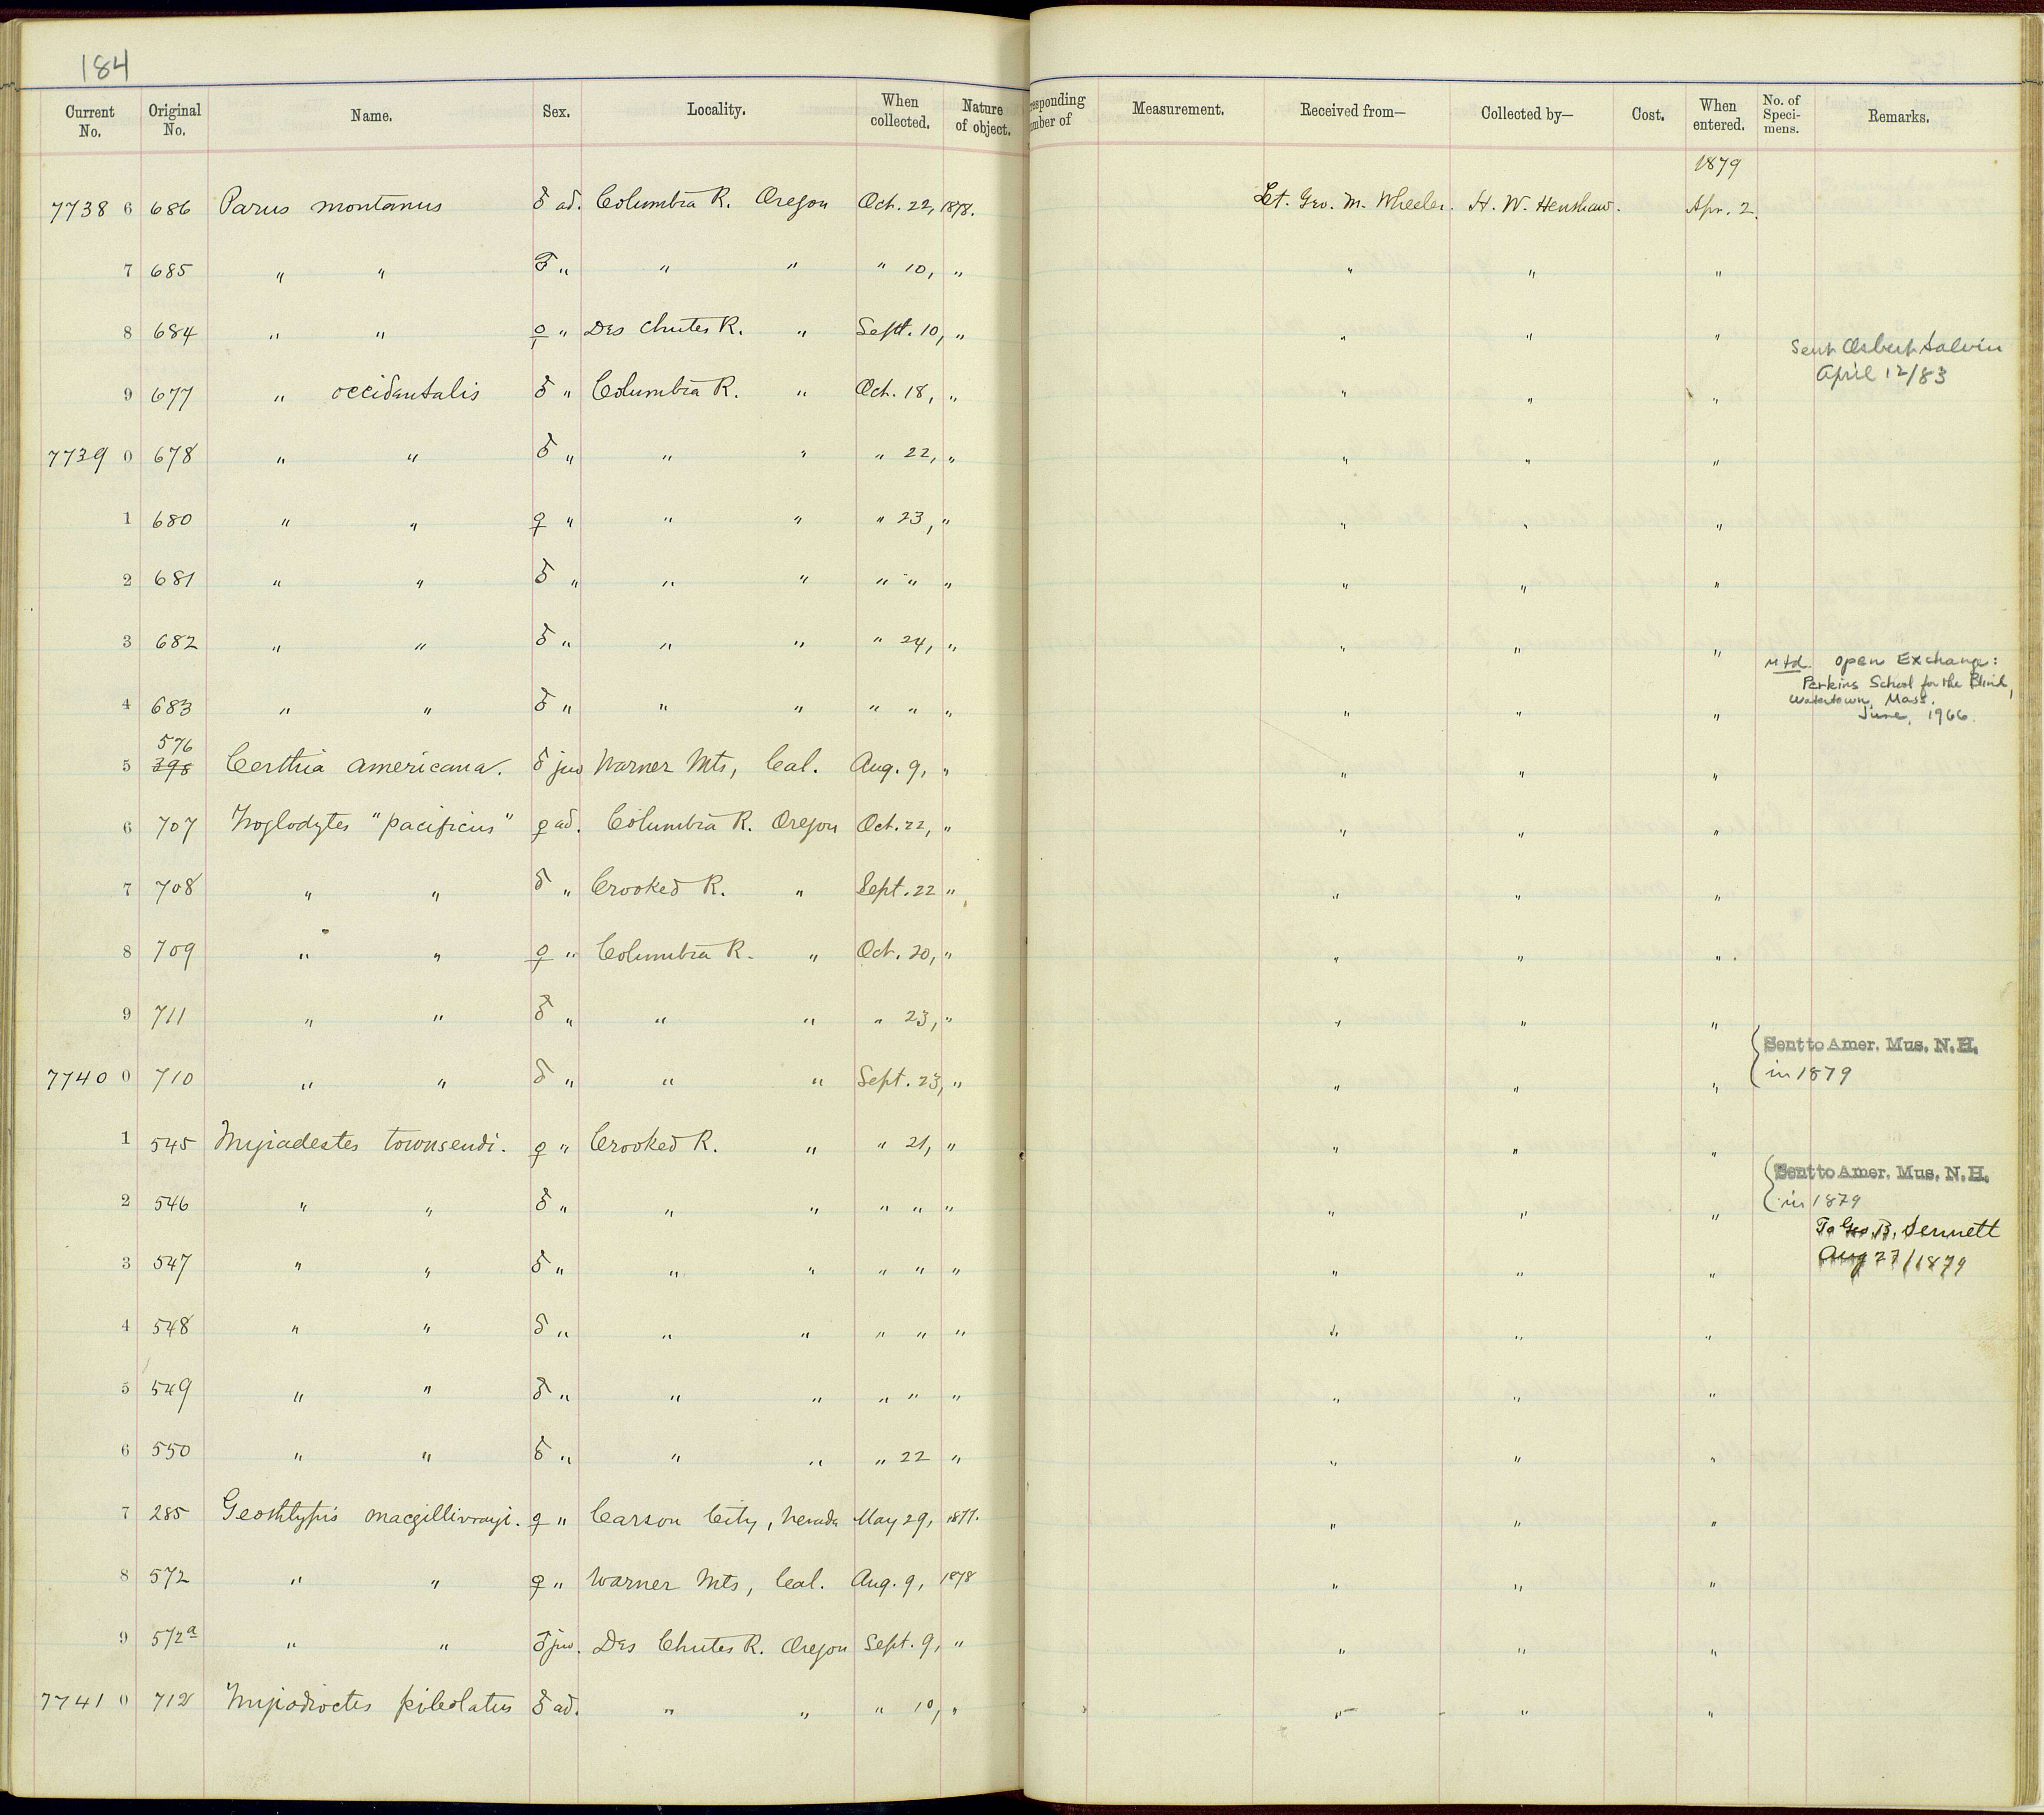 184
Current No. Original No. Name. Sex. Locality. When collected. Nature of object. responding mber of Measurement. Received from— Collected by— Cost. When entered. No. of Speci-mens. Remarks.
1879
7738 6 686 Parus montanus ♂ ad. Columbia R. Oregon Oct. 22, 1878. Lt. Geo. M. Wheeler. H. W. Henshaw. Apr. 2.
7 685 " " ♂ " " " " 10, " " " "
8 684 " " ♀ " Des Chutes R. " Sept. 10, " " " "
Sent Osbert Salvin
April 12/83
9 677 " occidentalis ♂ " Columbia R. " Oct. 18, " " " "
7739 0 678 " " ♂ " " " " 22, " " " "
1 680 " " ♀ " " " " 23, " " " "
2 681 " " ♂ " " " " " " " " "
3 682 " " ♂ " " " " 24, " " " "
Mtd. Open Exchange:
Perkins School for the Blind,
Watertown, Mass.
June, 1966.
4 683 " " ♂ " " " " " " " " "
576
5 398 Certhia americana. ♂ juv Warner Mts, Cal. Aug. 9, " " " "
6 707 Troglodytes "pacificus" ♀ ad. Columbia R. Oregon Oct. 22, " " " "
7 708 " " ♂ " Crooked R. " Sept. 22 " " " "
8 709 " " ♀ " Columbia R. " Oct. 20, " " " "
9 711 " " ♂ " " " " 23, " " " "
Sent to Amer. Mus. N. H.
in 1879
7740 0 710 " " ♂ " " " Sept. 23, " " " "
1 545 Myiadestes townsendi. ♀ " Crooked R. " " 21, " " " "
Sent to Amer. Mus. N. H.
in 1879
2 546 " " ♂ " " " " " " " " "
To Geo B. Sennett
Aug 27/1879
3 547 " " ♂ " " " " " " " " "
4 548 " " ♂ " " " " " " " " "
5 549 " " ♂ " " " " " " " " "
6 550 " " ♂ " " " " 22 " " " "
7 285 Geothlypis macgillivrayi. ♀ " Carson City, Nevada May 29, 1877. " " "
8 572 " " ♀ " Warner Mts, Cal. Aug. 9, 1878 " " "
9 572a " " ♂ juv. Des Chutes R. Oregon Sept. 9, " " " "
7741 0 712 Myiodioctes pileolatus ♂ ad. " " " 10, " " " "